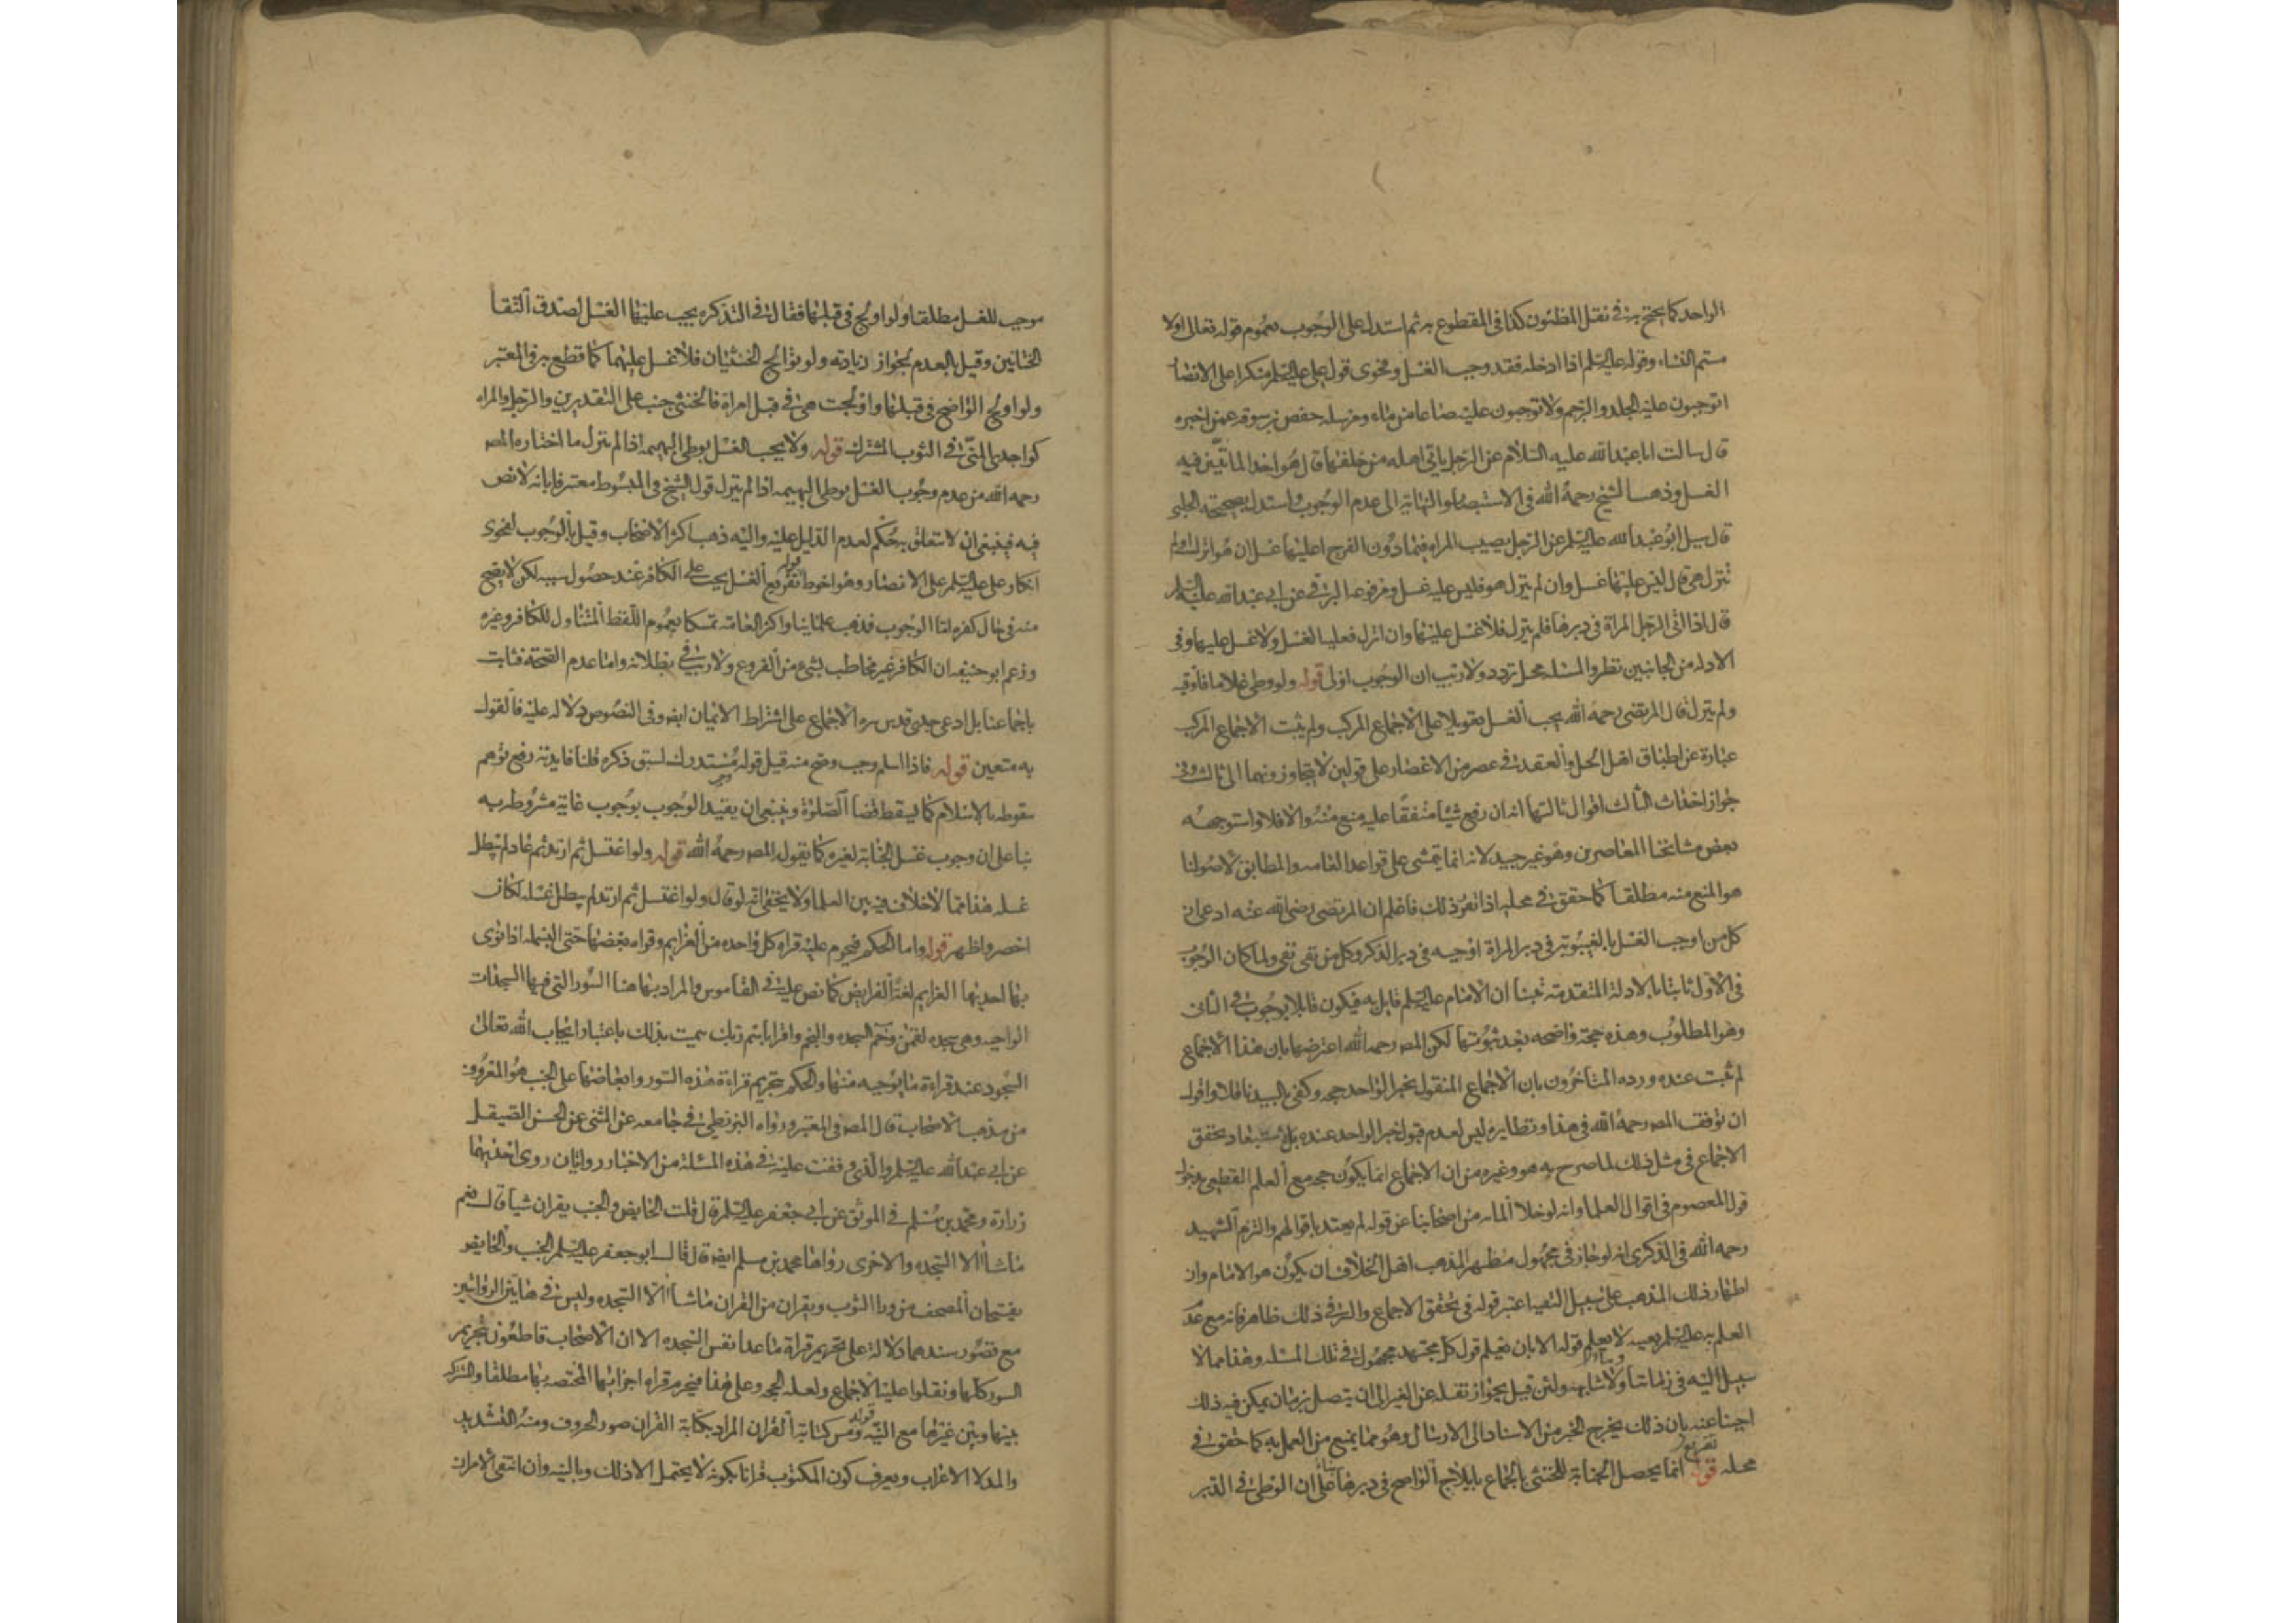 الواحد كما يحتج به في نقل المظنون كذا في المقطوع به ثم استدل على الوجوب بعموم قوله تعالى اولا
مستم النساء وقوله عليه السلم اذا ادخله فقد وجب الغسل وفحوى قول علي عليه السلم منكرا على الانصار
اتوجبون عليه الجلد والرجم ولا توجبون عليه صاعا من ماء ومرسله حفص بن سوقه عمن اخبره
قال سالت ابا عبد الله عليه السلام عن الرجل ياتي اهله من خلفها قال هو احد الماتيين فيه
الغسل وذهب الشيخ رحمه الله في الاستبصار والنهاية الى عدم الوجوب واستدل بصحيحة الحلبي
قال سيل ابو عبد الله عليه السلم عن الرجل يصيب المراه فيما دون الفرج اعليها غسل ان هو انزل ولم
تنزل هي قال ليس عليها غسل وان لم ينزل هو فليس عليه غسل ومرفوعه البرقي عن ابي عبد الله عليه السلم
قال اذا اتى الرجل المراة في دبرها فلم ينزل فلا غسل عليهما وان انزل فعليه الغسل ولا غسل عليها وفي
الادله من الجانبين نظر والمسئله محل تردد ولا ريب ان الوجوب اولى قوله ولو وطي غلاما فاوقبه
ولم ينزل قال المرتضى رحمه الله يجب الغسل تعويلا على الاجماع المركب ولم يثبت الاجماع المركب
عبارة عن اطباق اهل الحل والعقد في عصر من الاعصار على قولين لا يتجاوزونهما الى ثالث وفي
جواز احداث الثالث اقوال ثالثها انه ان رفع شيئا متفقا عليه منع منه والا فلا واستوجهه
بعض مشائخنا المعاصرين وهو غير جيد لانه انما يتمشى على قواعد العامه والمطابق لاصولنا
هو المنع منه مطلقا كما حقق في محله اذا تقرر ذلك فاعلم ان المرتضى رضي الله عنه ادعى ان
كل من اوجب الغسل بالغيبوبة في دبر المراة اوجبه في دبر الذكر وكل من نفى نفى ولما كان الوجوب
في الاول ثابتا بالادلة المتقدمة علمنا ان الامام عليه السلم قايل به فيكون قايلا بوجوب في الثاني
وهو المطلوب وهذه حجة واضحه بعد ثبوتها لكن المص رحمه الله اعترضها بان هذا الاجماع
لم يثبت عنده ورده المتاخرون بان الاجماع المنقول بخبر الواحد حجه وكفى بالسيد ناقلا واقول
ان توقف المص رحمه الله في هذا ونظايره ليس لعدم قبول خبر الواحد عنده بل لاستبعاد تحقق
الاجماع في مثل ذلك لما صرح به هو وغيره من ان الاجماع انما يكون حجه مع العلم القطعي بدخول
قول المعصوم في اقوال العلما وانه لو خلا المائه من اصحابنا عن قوله لم يعتد باقوالهم والتزم الشهيد
رحمه الله في الذكرى انه لو جاز في مجهول مظهر لمذهب اهل الخلاف ان يكون هو الامام وان
اظهار ذلك المذهب على سبيل التقيه اعتبر قوله في تحقق الاجماع والسر في ذلك ظاهر فانه مع عدم
العلم به عليه السلم بعينه لا يعلم قوله الا بان يعلم قول كل مجتهد مجهول في تلك المسئله وهذا مما لا
سبيل اليه في زماننا وما شابهه ولئن قيل بجواز نقله عن الغير الى ان يتصل بزمان يمكن فيه ذلك
اجبنا عنه بان ذلك يخرج الخبر من الاسناد الى الارسال وهو مما يمنع من العمل به كما حقق في
محله قوله تفريع انما يحصل الجنابة للخنثى بالجماع بايلاج الواضح في دبرها بناء على ان الوطئ في الدبر
موجب للغسل مطلقا ولو اولج في قبلها فقال في التذكره يجب عليهما الغسل لصدق التقا
الختانين وقيل بالعدم لجواز زيادته ولو توالج الخنثيان فلا غسل عليهما كما قطع به في المعتبر
ولو اولج الواضح في قبلها واولجت هي في قبل امراة فالخنثى جنب على التقديرين والرجل والمراه
كواجدي المني في الثوب المشترك قوله ولا يجب الغسل بوطي البهيمه اذا لم ينزل ما اختاره المص
رحمه الله من عدم وجوب الغسل بوطي البهيمه اذا لم ينزل قول الشيخ في المبسوط معترفا بانه لا نص
فيه فينبغي ان لا يتعلق به حكم لعدم الدليل عليه واليه ذهب اكثر الاصحاب وقيل بالوجوب لفحوى
انكار علي عليه السلم على الانصار وهو احوط قوله تفريع الغسل يجب على الكافر عند حصول سببه لكن لا يصح
منه في حال كفره اما الوجوب فذهب علمائنا واكثر العامه تمسكا بعموم اللفظ المتناول للكافر وغيره
وزعم ابو حنيفه ان الكافر غير مخاطب بشيء من الفروع ولا ريب في بطلانه واما عدم الصحة فثابت
باجماعنا بل ادعى جدي قدس سره الاجماع على اشتراط الايمان ايضا وفي النصوص دلاله عليه فالقول
به متعين قوله فاذا اسلم وجب وصح منه قيل قوله وجب مستدرك لسبق ذكره قلنا فايدته رفع توهم
سقوطه بالاسلام كما يسقط قضا الصلوة وينبغي ان يقيد الوجوب بوجوب غاية مشروطه به
بنا على ان وجوب غسل الجنابة لغيره كما يقوله المص رحمه الله قوله ولو اغتسل ثم ارتد ثم عاد لم يبطل
غسله هذا مما لا خلاف فيه بين العلما ولا يخفى انه لو قال ولو اغتسل ثم ارتد لم يبطل غسله لكان
اخصر واظهر قوله واما الحكم فيحرم عليه قراه كل واحده من العزايم وقراه بعضها حتى البسمله اذا نوى
بها احديها العزايم لغة الفرايض كما نص عليه في القاموس والمراد بها هنا السور التي فيها السجدات
الواجبه وهي سجده لقمن وحم السجده والنجم واقرا باسم ربك سميت بذلك باعتبار ايجاب الله تعالى
السجود عند قراءة ما يوجبه منها والحكم بتحريم قراءة هذه السور وابعاضها على الجنب هو المعروف
من مذهب الاصحاب قال المص في المعتبر ورواه البزنطي في جامعه عن المثنى عن الحسن الصيقل
عن ابي عبد الله عليه السلم والذي وقفت عليه في هذه المسئلة من الاخبار روايتان روى احديهما
زرارة ومحمد بن مسلم في الموثق عن ابي جعفر عليه السلم قال قلت الحايض والجنب يقران شيا قال نعم
ما شاا الا السجده والاخرى رواها محمد بن مسلم ايضا قال قال ابو جعفر عليه السلم الجنب والحايض
يفتحان المصحف من ورا الثوب ويقران من القران ما شاا الا السجده وليس في هاتين الروايتين
مع قصور سندهما دلالة على تحريم قراة ما عدا نفس السجده الا ان الاصحاب قاطعون بتحريم
السور كلها ونقلوا عليه الاجماع ولعله الحجه وعلى هذا فيحرم قراه اجزائها المختصه بها مطلقا والمشتركه
بينها وبين غيرها مع النيه قوله ومس كتابة القران المراد بكتابة القران صور الحروف ومنه التشديد
والمد لا الاعراب ويعرف كون المكتوب قرانا بكونه لا يحتمل الا ذلك وبالنيه وان انتفى الامران